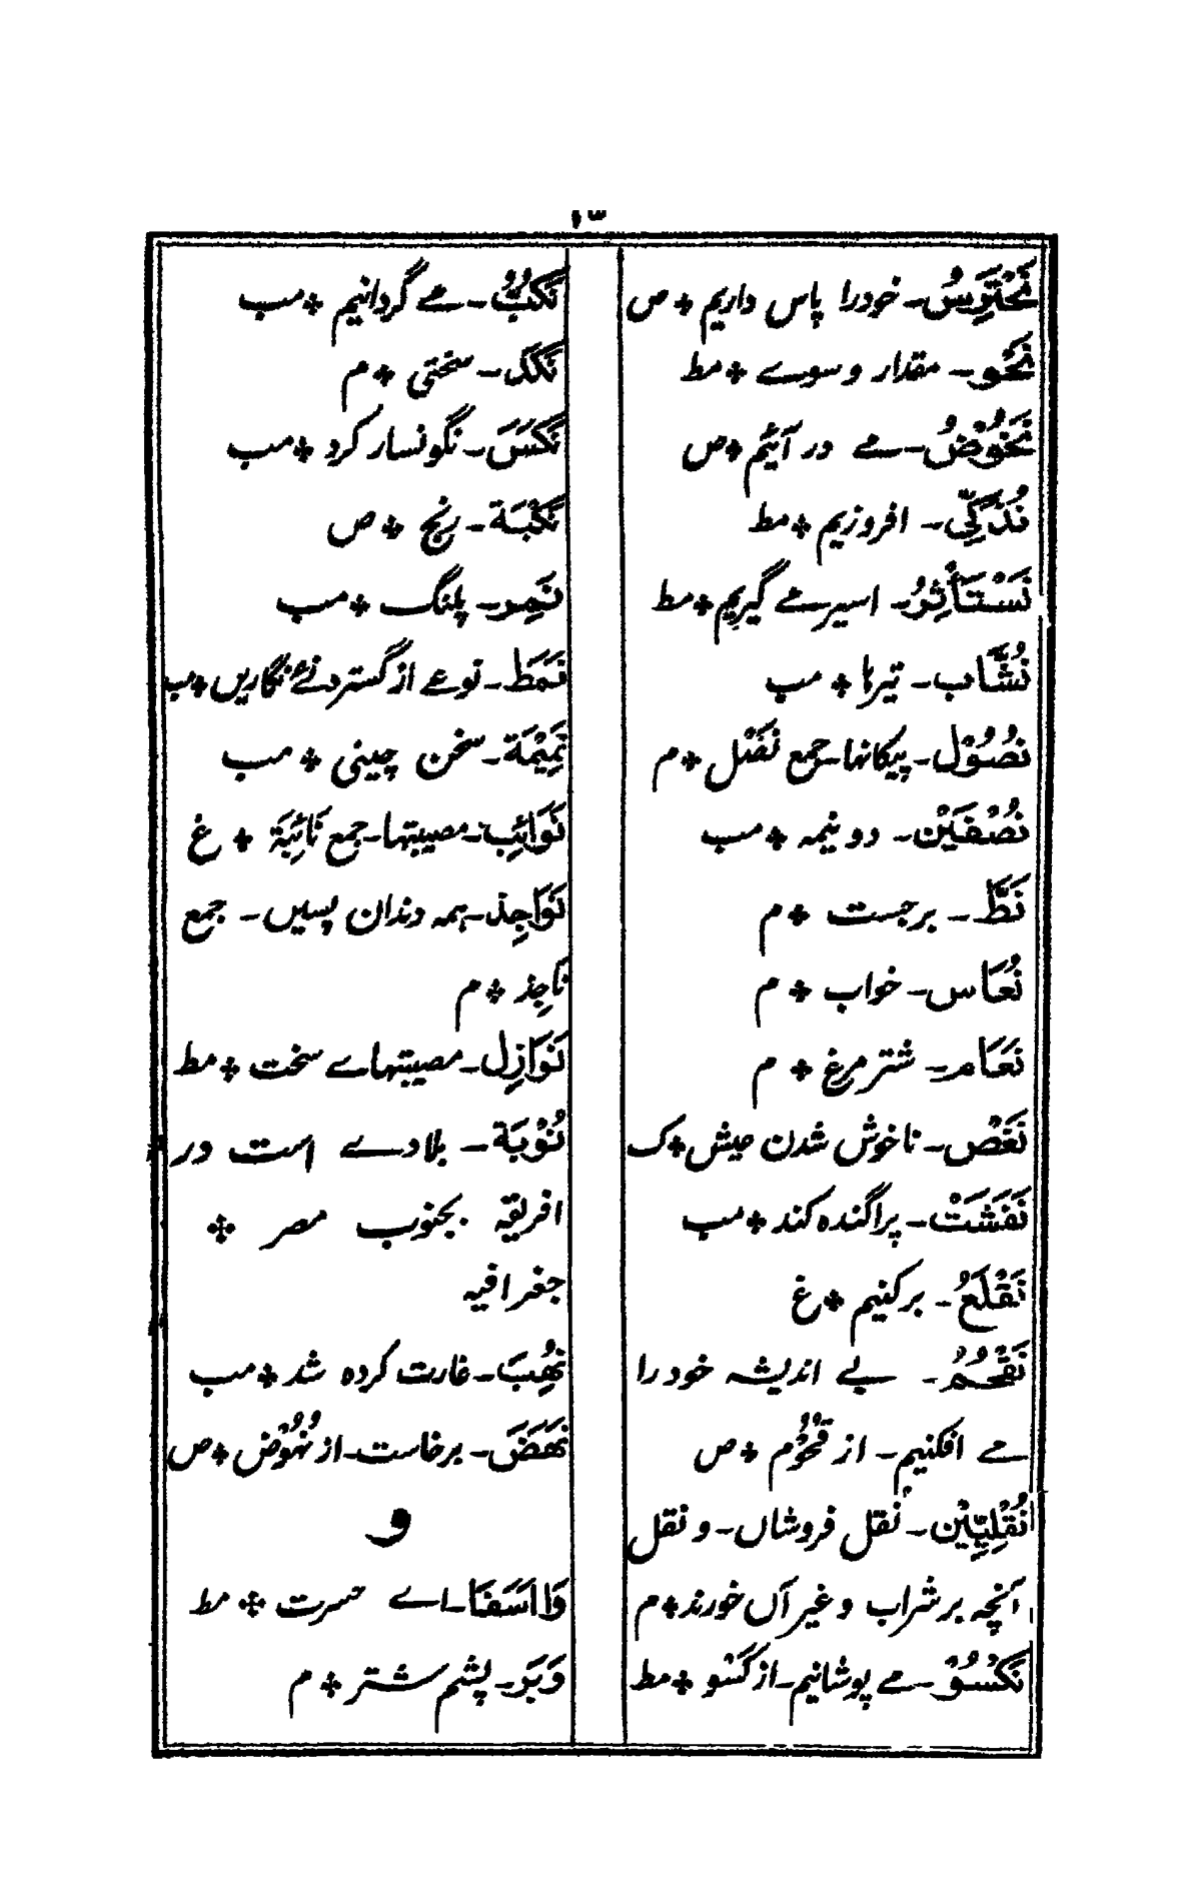 نَحْتَرِسُ۔ خودرا پاس داریم ✤ ص
نَحْو۔ مقدار و سوے ✤ مط
نَخُوْضُ۔ مے در آئیم ✤ ص
نُذَكِّی۔ افروزیم ✤ مط
نَسْتَأْثِرُ۔ اسیر مے گیریم ✤ مط
نُشَّاب۔ تیرہا ✤ مب
نُصُوْل۔ پیکانہا۔ جمع نَصْل ✤ م
نُصْفَیْن۔ دو نیمہ ✤ مب
نَطَّ۔ برجست ✤ م
نُعَاس۔ خواب ✤ م
نَعَام۔ شتر مرغ ✤ م
نَغَص۔ ناخوش شدن عیش ✤ ک
نَفَشَتْ۔ پراگندہ کند ✤ مب
نَقْلَعُ۔ برکنیم ✤ غ
نَقْحُمُ۔ بے اندیشہ خود را
مے افکنیم۔ از قُحُوْم ✤ ص
نُقْلِیِّیْن۔ نُقل فروشاں۔ و نقل
آنچہ بر شراب و غیر آں خورند ✤ م
نَكْسُوْ۔ مے پوشانیم۔ از كَسْو ✤ مط
نَكُبُّ۔ مے گردانیم ✤ مب
نَكَد۔ سختی ✤ م
نَكَسَ۔ نگونسار کرد ✤ مب
نَكْبَة۔ رنج ✤ ص
نَمِر۔ پلنگ ✤ مب
نَمَط۔ نوعے از گستردنئے نگاریں ✤ مب
نَمِیْمَة۔ سخن چینی ✤ مب
نَوَائِب۔ مصیبتہا۔ جمع نَائِبَة ✤ غ
نَوَاجِذ۔ ہمہ دندان پسیں۔ جمع
نَاجِذ ✤ م
نَوَازِل۔ مصیبتہاے سخت ✤ مط
نُوْبَة۔ بلادے است در
افریقہ بجنوب مصر ✤
جغرافیہ
نُهِبَ۔ غارت کردہ شد ✤ مب
نَهَضَ۔ برخاست۔ از نُهُوْض ✤ ص
و
وَا اَسَفَا۔ اے حسرت ✤ مط
وَبَر۔ پشم شتر ✤ م